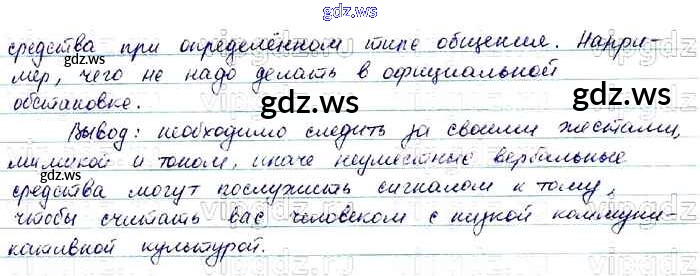 gdz.ws
средства при определённом типе общения. Напри-
мер, чего не надо делать в официальной
обстановке.
gdz.ws gdz.ws
Вывод: необходимо следить за своими жестами,
мимикой и тоном, иначе неуместные вербальные
средства могут послужить сигналом к тому,
чтобы считать вас человеком с низкой коммуни-
кативной культурой.
gdz.ws gdz.ws